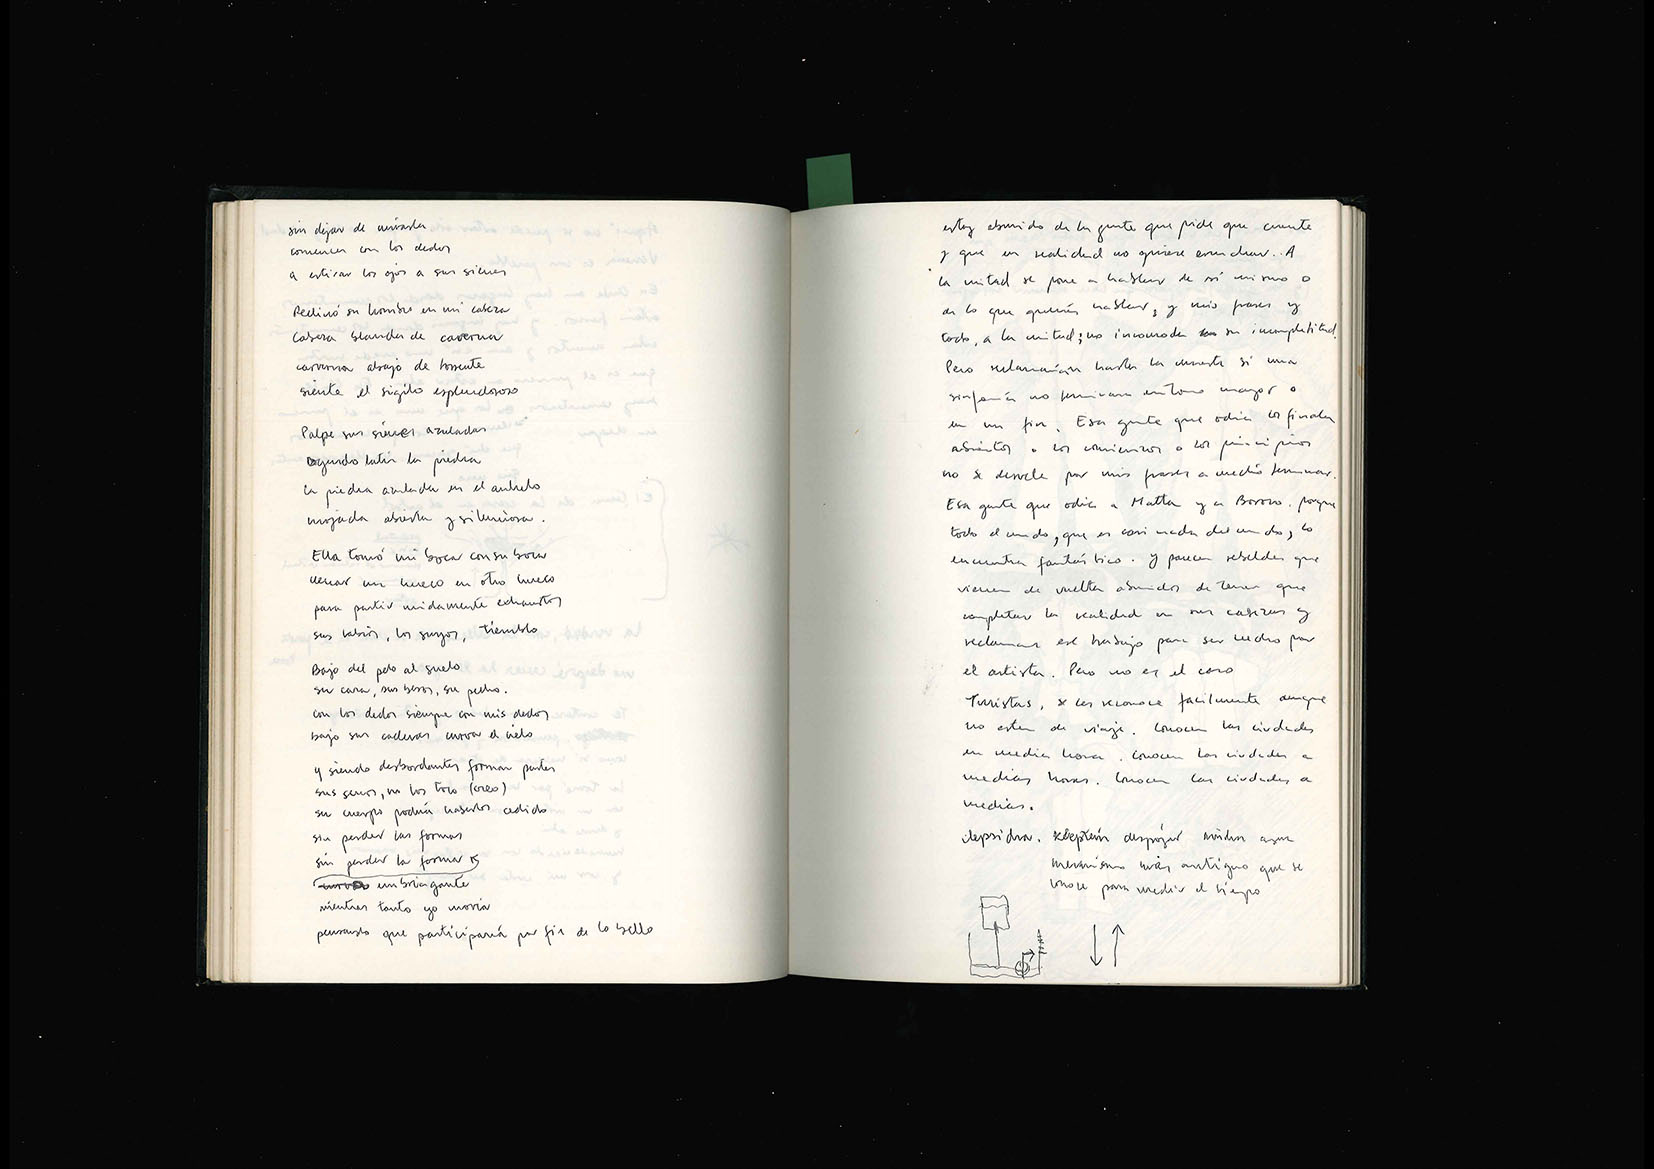 sin dejar de mirarla
comencé con los dedos
a estirar los ojos a sus sienes
Reclinó su hombro en mi cabeza
Cabeza blanda de caverna
caverna abajo de torrente
siente el sigilo esplendoroso
Palpé sus sienes azuladas
oyendo latir la piedra
la piedra azulada en el anhelo
mojada abierta y silenciosa.
Ella tomó mi boca con su boca
un hueco en otro hueco
para partir exhaustos
sus labios, los suyos, tiemblo
Bajo del pelo al suelo
su cara, sus besos, su pecho.
con los dedos siempre con mis dedos
bajo sus caderas curva el cielo
y siendo desbordantes forman partes
sus senos, no los toco (creo)
su cuerpo podría haberlos cedido
sin perder las formas
sin perder la forma
embriagante
mientras tanto yo moría
pensando que participaría por fin de lo bello
estoy aburrido de la gente que pide que cuente
y que en realidad no quiere escuchar. A
la mitad se pone a hablar de sí mismo o
de lo que quería hablar, y mis frases y
todo, a la mitad; no incomoda su incompletitud.
Pero reclamarían hasta la muerte si una
sinfonía no terminara en tono mayor o
en un fin. Esa gente que odia los finales
abiertos o los comienzos o los principios
no se desvela por mis frases a medio terminar.
Esa gente que odia a Matta y a Borozo. porque
todo el mundo, que es casi nada del mundo, lo
encuentra fantástico. y parecen rebeldes que
vienen de vuelta aburridos de tener que
completar la realidad en sus cabezas y
reclaman ese trabajo para ser hecho por
el artista. Pero no es el caso
Turistas, se les reconoce fácilmente aunque
no estén de viaje. Conocen las ciudades
en media hora. Conocen las ciudades a
medias horas. Conocen las ciudades a
medias.
clepsidra. despojar hidra agua
mecanismo más antiguo que se
conoce para medir el tiempo